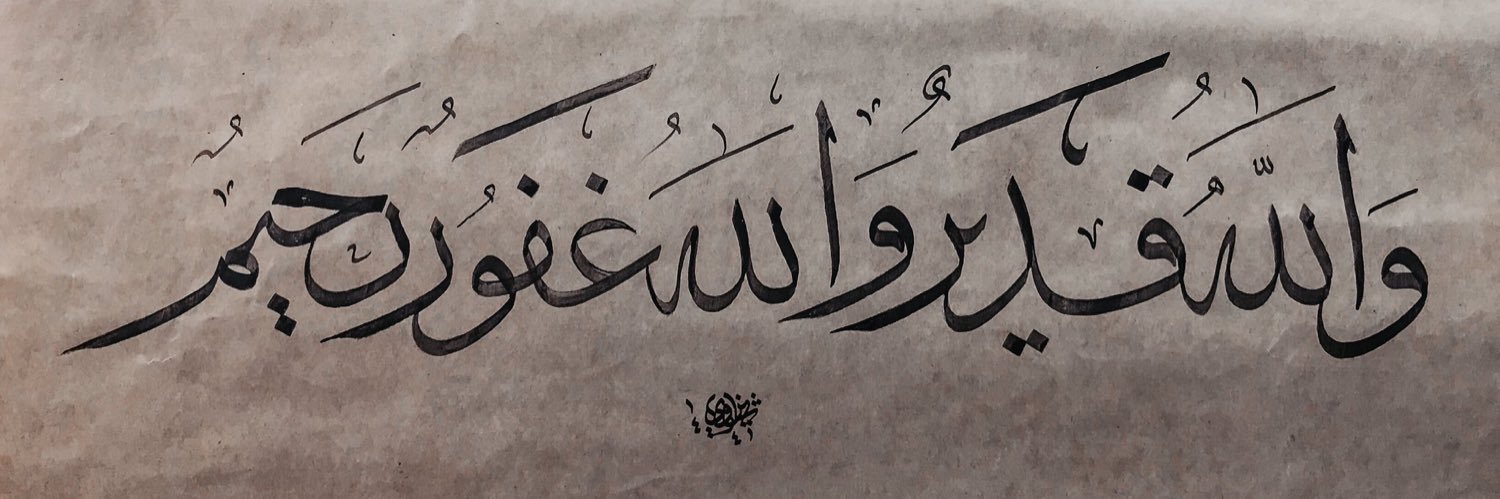 وَاللَّهُ قَدِيرٌ وَاللَّهُ غَفُورٌ رَحِيمٌ